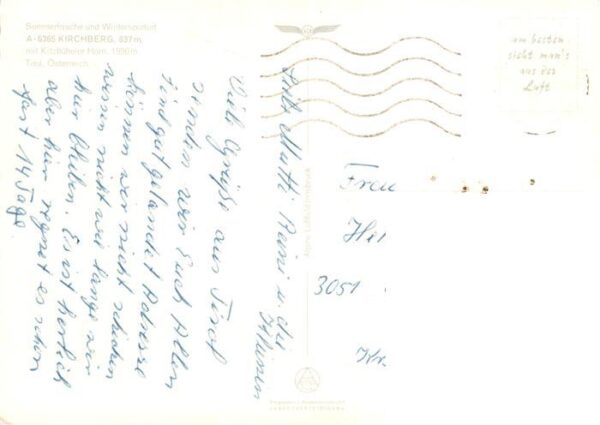 Sommerfrische und Wintersportort
A-6365 KIRCHBERG, 837 m
mit Kitzbüheler Horn, 1996 m
Tirol, Österreich
Liebe Mutti Reini u. die
Kleinen
Viele Grüße aus Tirol
senden wir Euch Allen
sind gut gelandet Adresse
können wir nicht schicken
wissen nicht wie lange wir
hier bleiben. Es ist herrlich
aber hier regnet es schon
fast 14 Tage.
am besten
sieht man's
aus der
Luft
Frau
3051